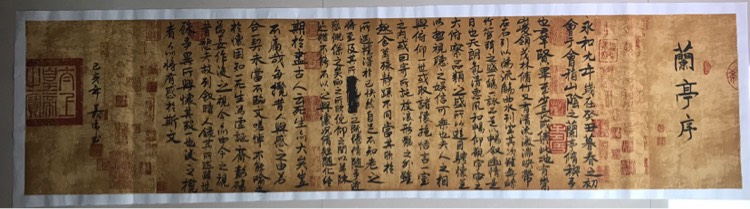 蘭亭序
永和九年歲在癸丑暮春之初
會于會稽山陰之蘭亭修禊事
也羣賢畢至少長咸集此地有崇
山峻領茂林修竹又有清流激湍映帶
左右引以為流觴曲水列坐其次雖無絲
竹管弦之盛一觴一詠亦足以暢敘幽情是
日也天朗氣清惠風和暢仰觀宇宙之
大俯察品類之盛所以遊目騁懷足
以極視聽之娛信可樂也夫人之相
與俯仰一世或取諸懷抱悟言一室
之內或因寄所託放浪形骸之外雖
趣舍萬殊靜躁不同當其欣於
所遇暫得於己快然自足不知老之
將至及其之既倦情隨事遷
感慨係之矣向之所欣俛仰之間以為陳
迹猶不能不以之興懷況脩短隨化終
期於盡古人云死生亦大矣豈
不痛哉每攬昔人興感之由若
合一契未嘗不臨文嗟悼不能喻之
於懷固知一死生為虛誕齊彭殤
為妄作後之視今亦由今之視
昔悲夫故列敘時人錄其所述雖世
殊事異所以興懷其致一也後之攬
者亦將有感於斯文
己亥年